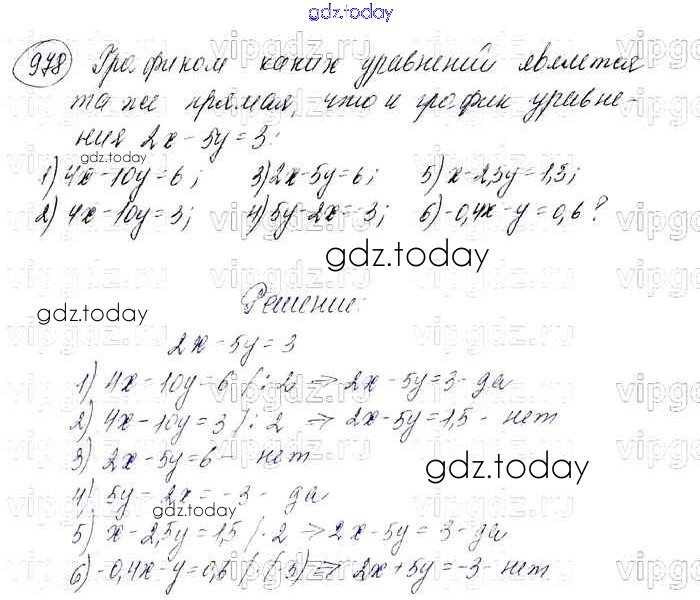 gdz.today
978 Графиком каких уравнений является
та же прямая, что и график уравне-
ния 2x - 5y = 3:
gdz.today
1) 4x - 10y = 6; 3) 2x - 5y = 6; 5) x - 2,5y = 1,5;
2) 4x - 10y = 3; 4) 5y - 2x = -3; 6) -0,4x - y = 0,6?
gdz.today
gdz.today
Решение:
2x - 5y = 3
1) 4x - 10y = 6 /: 2 => 2x - 5y = 3 - да
2) 4x - 10y = 3 /: 2 => 2x - 5y = 1,5 - нет
3) 2x - 5y = 6 - нет
gdz.today
4) 5y - 2x = -3 - да
5) x - 2,5y = 1,5 /· 2 => 2x - 5y = 3 - да
6) -0,4x - y = 0,6 /·(-5) => 2x + 5y = -3 - нет